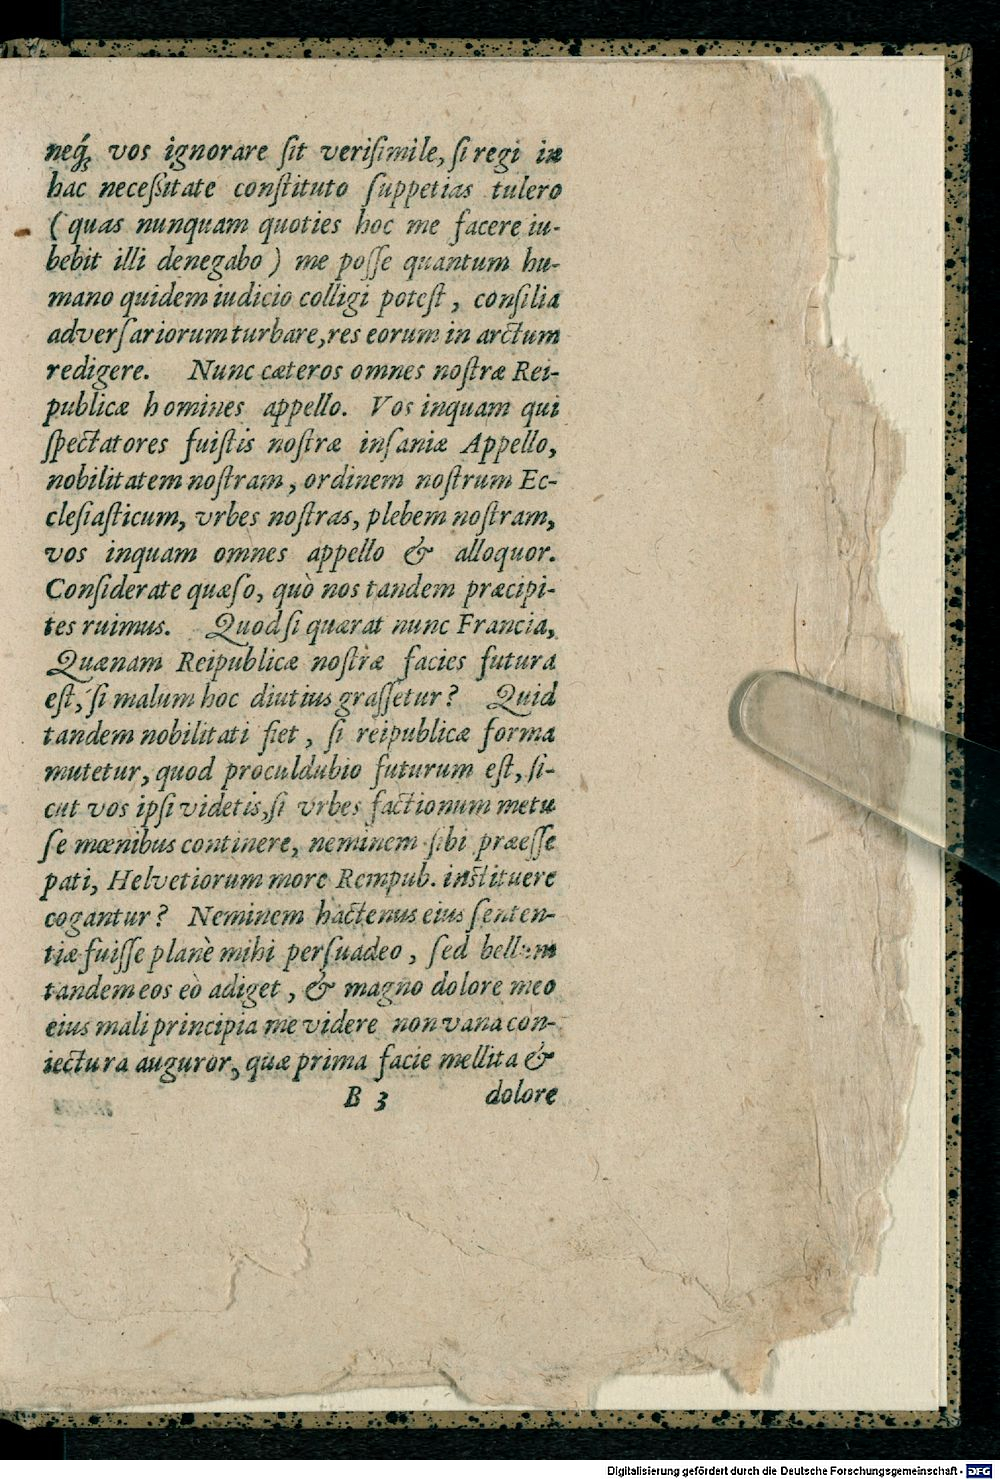 neq́ꝫ vos ignorare ſit veriſimile, ſi regi in
hac neceßitate conſtituto ſuppetias tulero
(quas nunquam quoties hoc me facere iu-
bebit illi denegabo) me poſſe quantum hu-
mano quidem iudicio colligi poteſt, conſilia
adverſariorum turbare, res eorum in arctum
redigere. Nunc cæteros omnes noſtræ Rei-
publicæ homines appello. Vos inquam qui
ſpectatores fuiſtis noſtræ inſaniæ Appello,
nobilitatem noſtram, ordinem noſtrum Ec-
cleſiaſticum, vrbes noſtras, plebem noſtram,
vos inquam omnes appello & alloquor.
Conſiderate quæſo, quò nos tandem præcipi-
tes ruimus. Quod ſi quærat nunc Francia,
Quænam Reipublicæ noſtræ facies futura
eſt, ſi malum hoc diutius graſſetur? Quid
tandem nobilitati fiet, ſi reipublicæ forma
mutetur, quod proculdubio futurum eſt, ſi-
cut vos ipſi videtis, ſi vrbes factionum metu
ſe mœnibus continere, neminem ſibi præeſſe
pati, Helvetiorum more Rempub. inſtituere
cogantur? Neminem hactenus eius ſenten-
tiæ fuiſſe planè mihi perſuadeo, ſed bellum
tandem eos eò adiget, & magno dolore meo
eius mali principia me videre non vana con-
iectura auguror, quæ prima facie mellita &
B 3 dolore
Digitalisierung gefördert durch die Deutsche Forschungsgemeinschaft - DFG